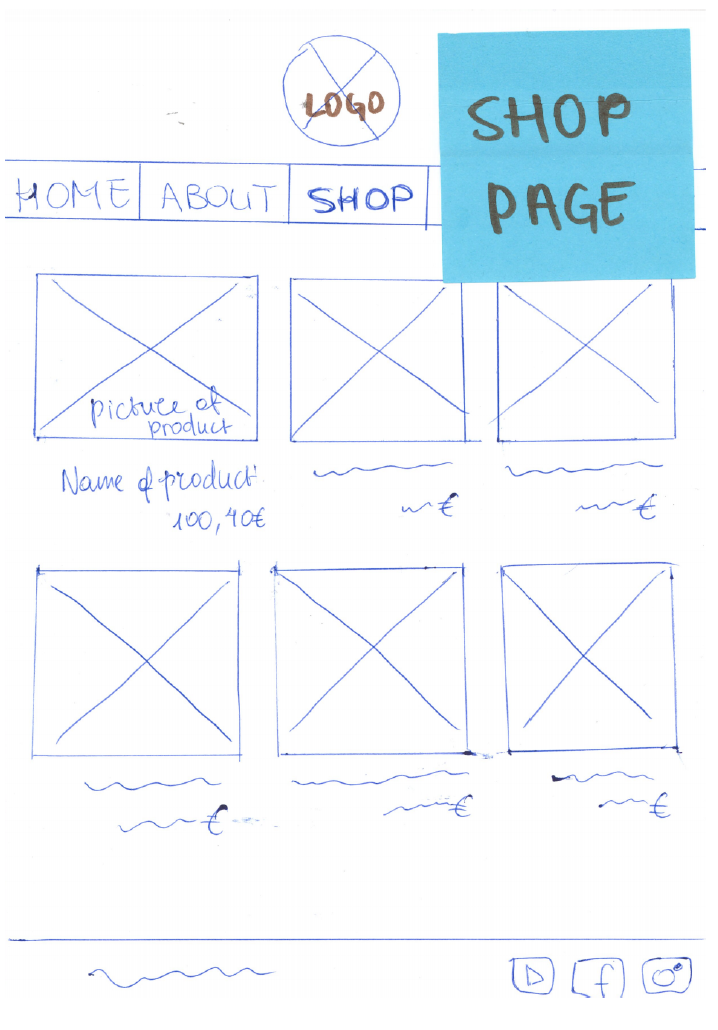 LOGO
SHOP
PAGE
HOME ABOUT SHOP
picture of
product
Name of product
100,40€
€
€
€
€
€
f